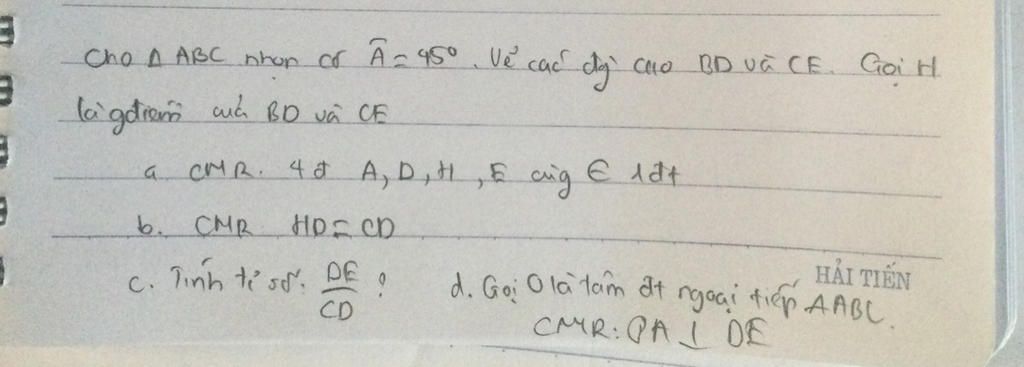 Cho Δ ABC nhọn có Â = 45°. Vẽ các đg` cao BD và CE. Gọi H
là gđiểm của BD và CE
a. CMR. 4 đ A, D, H, E cùng ∈ 1 đt
b. CMR HD = CD
c. Tính tỉ số: DE/CD ? d. Gọi O là tâm đt ngoại tiếp ΔABC.
HẢI TIẾN
CMR: OA ⊥ DE